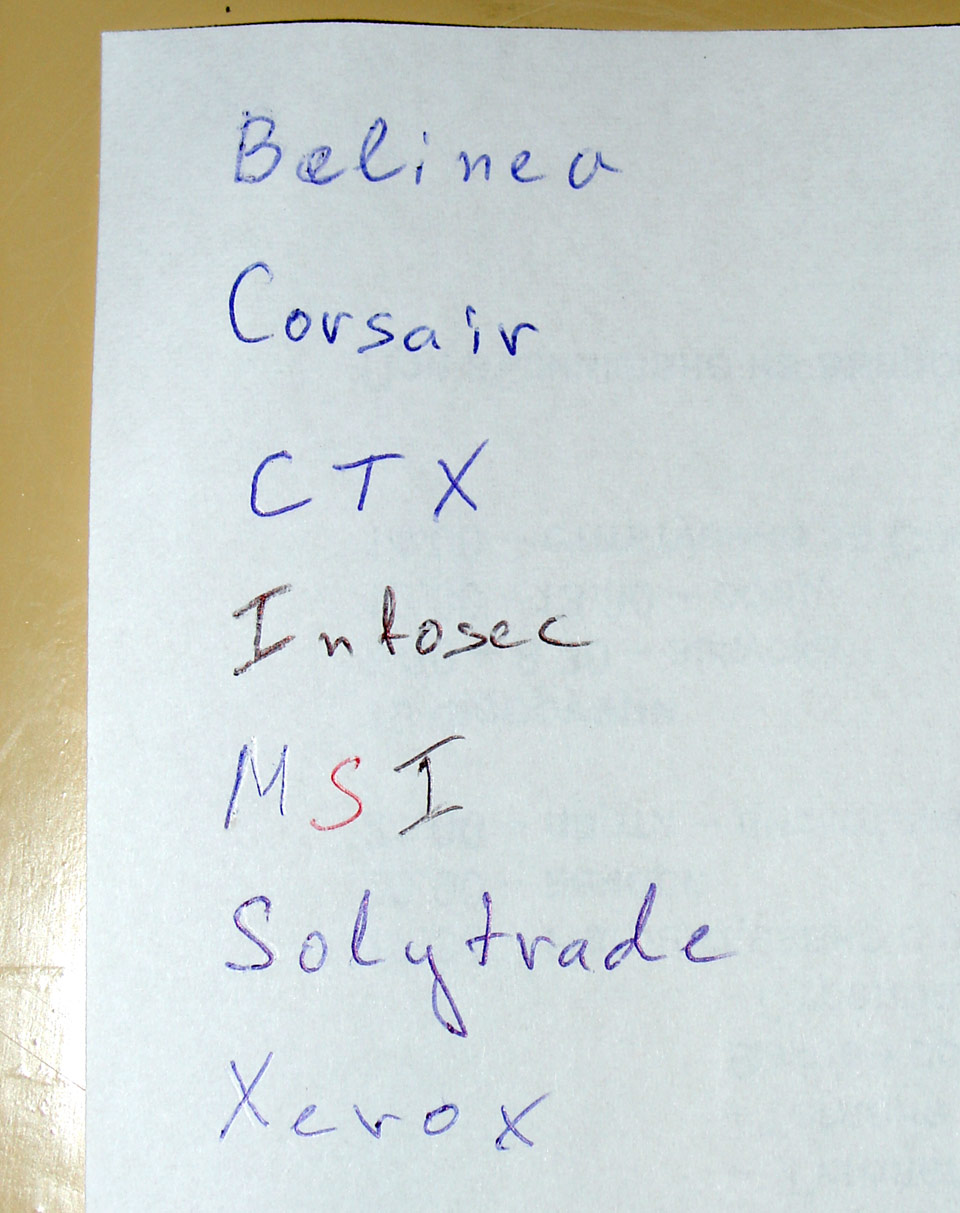 Belinea
Corsair
CTX
Intosec
MSI
Solytrade
Xerox